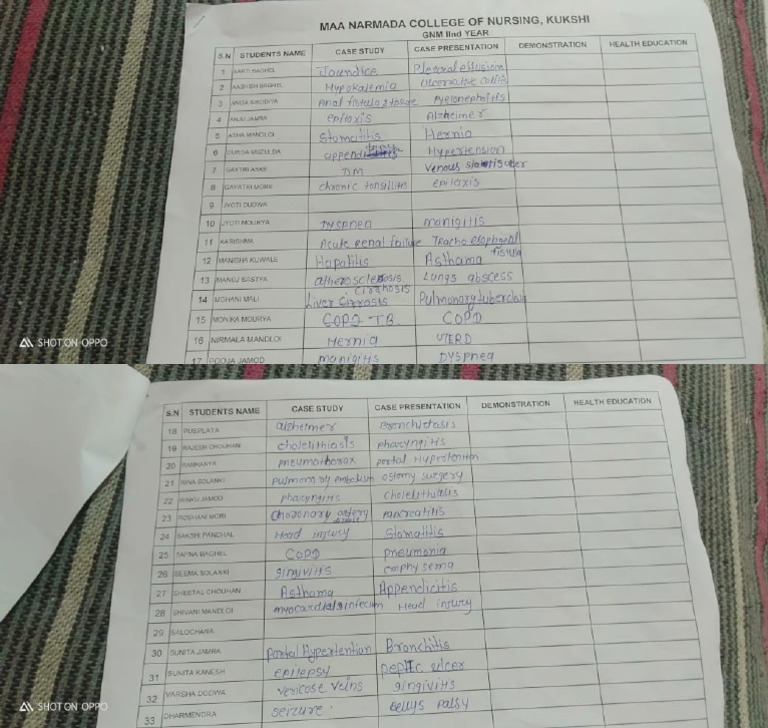 MAA NARMADA COLLEGE OF NURSING, KUKSHI
GNM IInd YEAR
S.N STUDENTS NAME CASE STUDY CASE PRESENTATION DEMONSTRATION HEALTH EDUCATION
1 BAGHEL Jaundice Pleural effusion
2 BAGHEL Hypokalemia Ulcerative
3 Anal fistula Pyelonephritis
4 JAMRA epitaxis Alzheimer
5 MANDLOI Stomatitis Hernia
6 append Hypertension
7 DM Venous
8 GAYATRI MORE chronic tonsillitis epitaxis
9 JYOTI DUDWA
10 JYOTI MOURYA Dyspnea manigitis
11 KARISHMA Acute renal failure Tracho esophgeal fistula
12 MANISHA KUWALE Hapatitis Asthama
13 MANOJ BASTYA atherosclerosis Lungs abscess
14 MOHANI MALI Liver Cirrosis Cirrhosis Pulmonary
15 MONIKA MOURYA COPD TB COPD
16 NIRMALA MANDLOI Hernia
17 POOJA JAMOD manigitis Dyspnea
SHOT ON OPPO
S.N STUDENTS NAME CASE STUDY CASE PRESENTATION DEMONSTRATION HEALTH EDUCATION
18 PUSPLATA alzheimer Bronchietasis
19 RAJESH CHOUHAN cholelithiasis pharyngitis
20 RAMKANYA pneumothorax portal Hypertention
21 RINA SOLANKI pulmonary embolism ostomy surgery
22 RINKU JAMOD pharyngitis Cholelithiasis
23 ROSHANI MORI artery pancreatitis
24 SAKSHI PANCHAL Head injury Stomatitis
25 SAPNA BAGHEL COPD pneumonia
26 SEEMA SOLANKI gingivitis emphysema
27 SHEETAL CHOUHAN Asthama Appendicitis
28 SHIVANI MANDLOI Head injury
29 SALOCHANA
30 SUNITA JAMRA Portal Hypertention Bronchitis
31 SUNITA KANESH epilepsy peptic ulcer
32 VARSHA DODWA vericose veins gingivitis
33 DHARMENDRA seizure Bellys palsy
SHOT ON OPPO